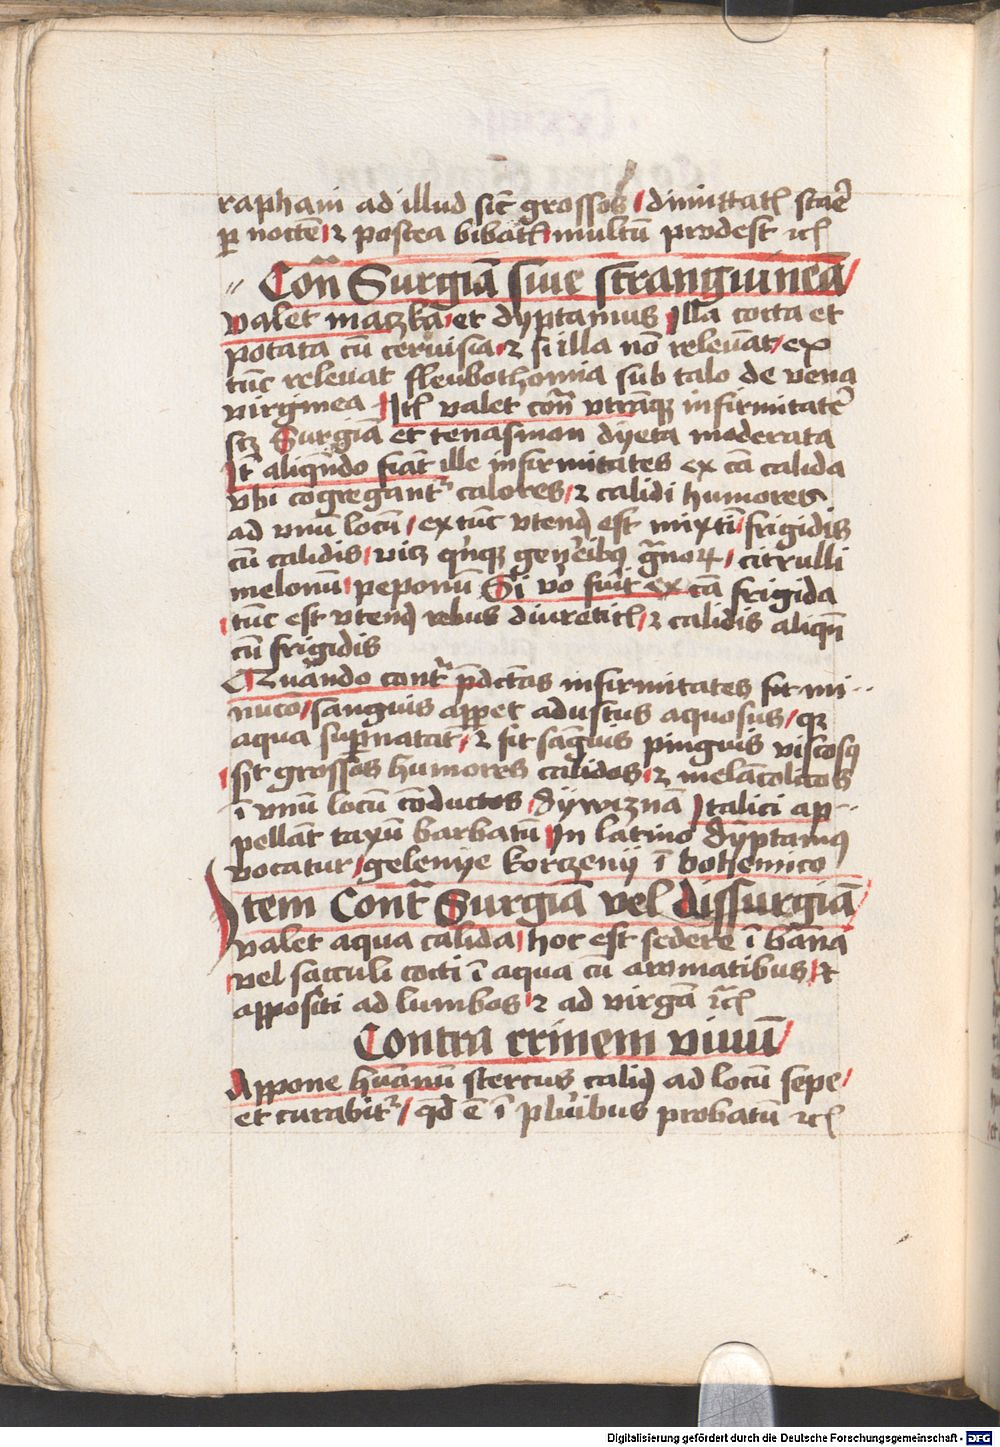 raphani ad illud sic̄ grossos / dimittat᷒ stāe
p̱ noctē / ⁊ postea bibat᷒ / multū prodest ⁊c̄
Con̄ Surgiā siue stranguineā /
valet maczkā / et dyptamus Illa cocta et
potata cū ceruisia / ⁊ si illa nō releuat / ex
tūc releuat fleubothomia sub talo de vena
virginea It᷒ valet con̄ vtrāqꝫ infirmitatē
scꝫ Surgiā et tenasmon dyeta moderata
It̄ aliqn̄do fiāt ille infirmitates ex cā calida
vbi cogregant᷒ calores / ⁊ calidi humores
ad vnū locū / ex tūc vtend᷒ est mixtī frigidis
cū calidis / vicꝫ q̇nqꝫ gen̄eibꝰ gͣnoꝝ / citrulli
melonū / peponū Si vo fu̇it ex cā frigida
/ tūc est vtend᷒ rebus diuretic᷒ / ⁊ calidis aliqn̄
cū frigidis
Quando cont᷒ p̄dictas infirmitates fit mi-
nucō / sanguis apꝑet adustus aquosus / qꝫ
aqua suꝑnatat / ⁊ fit sāguis pinguis viscosꝰ
/ st̄ grossos humores calidos / ⁊ melācolicos
ī vnū locū cōductos / dywiznā Italici ap-
pellāt taxū barbatū In latino dyptamꝰ
vocatur / gelenije korzenij ī bohemico
Item Cont̄ Surgiā vel dissurgiā /
valet aqua calida / hoc est sedere ī bānea
/ vel sacculi cocti ī aqua cū aromatibus / et
appositi ad lumbos / ⁊ ad virgā ⁊c̄
Contra crinem viuū /
Appone hu̇anū stercus calid᷒ ad locū sepe /
et curabit᷒ / qd̄ ē ī plu̇ibus probatū ⁊c̄
Digitalisierung gefördert durch die Deutsche Forschungsgemeinschaft - DFG